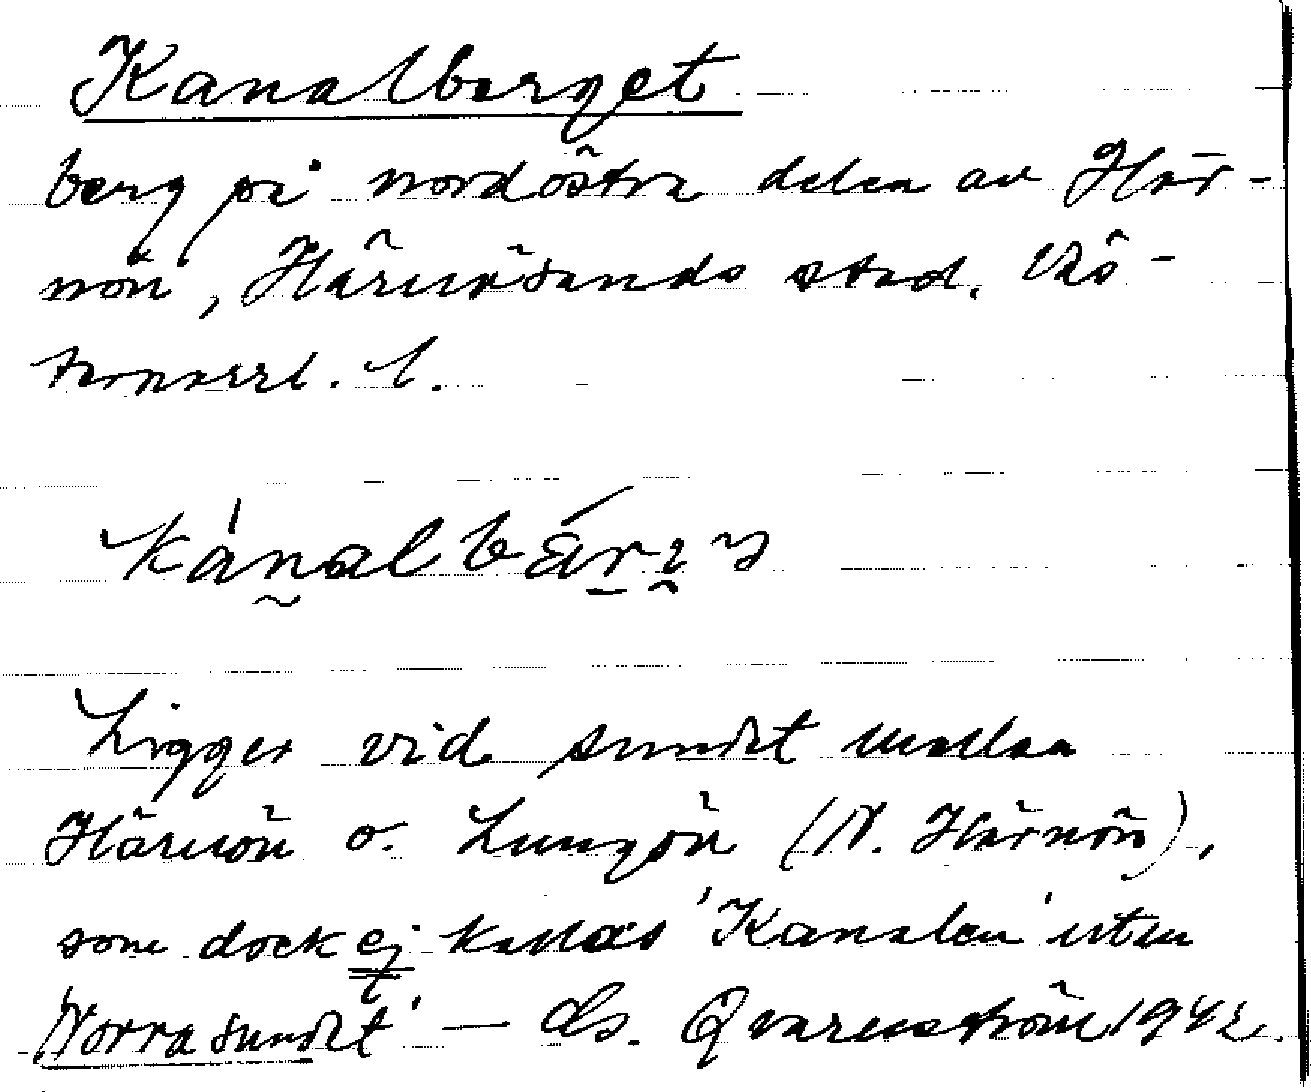 Kanalberget
berg på nordöstra delen av Här-
nön, Härnösands stad. Väs-
ternorrl. l.
Ligger vid sundet mellan
Härnön o. Lungön (N. Härnön),
som dock ej kallas 'Kanalen' utan
'Norra sundet' — Qvarnström 1942.